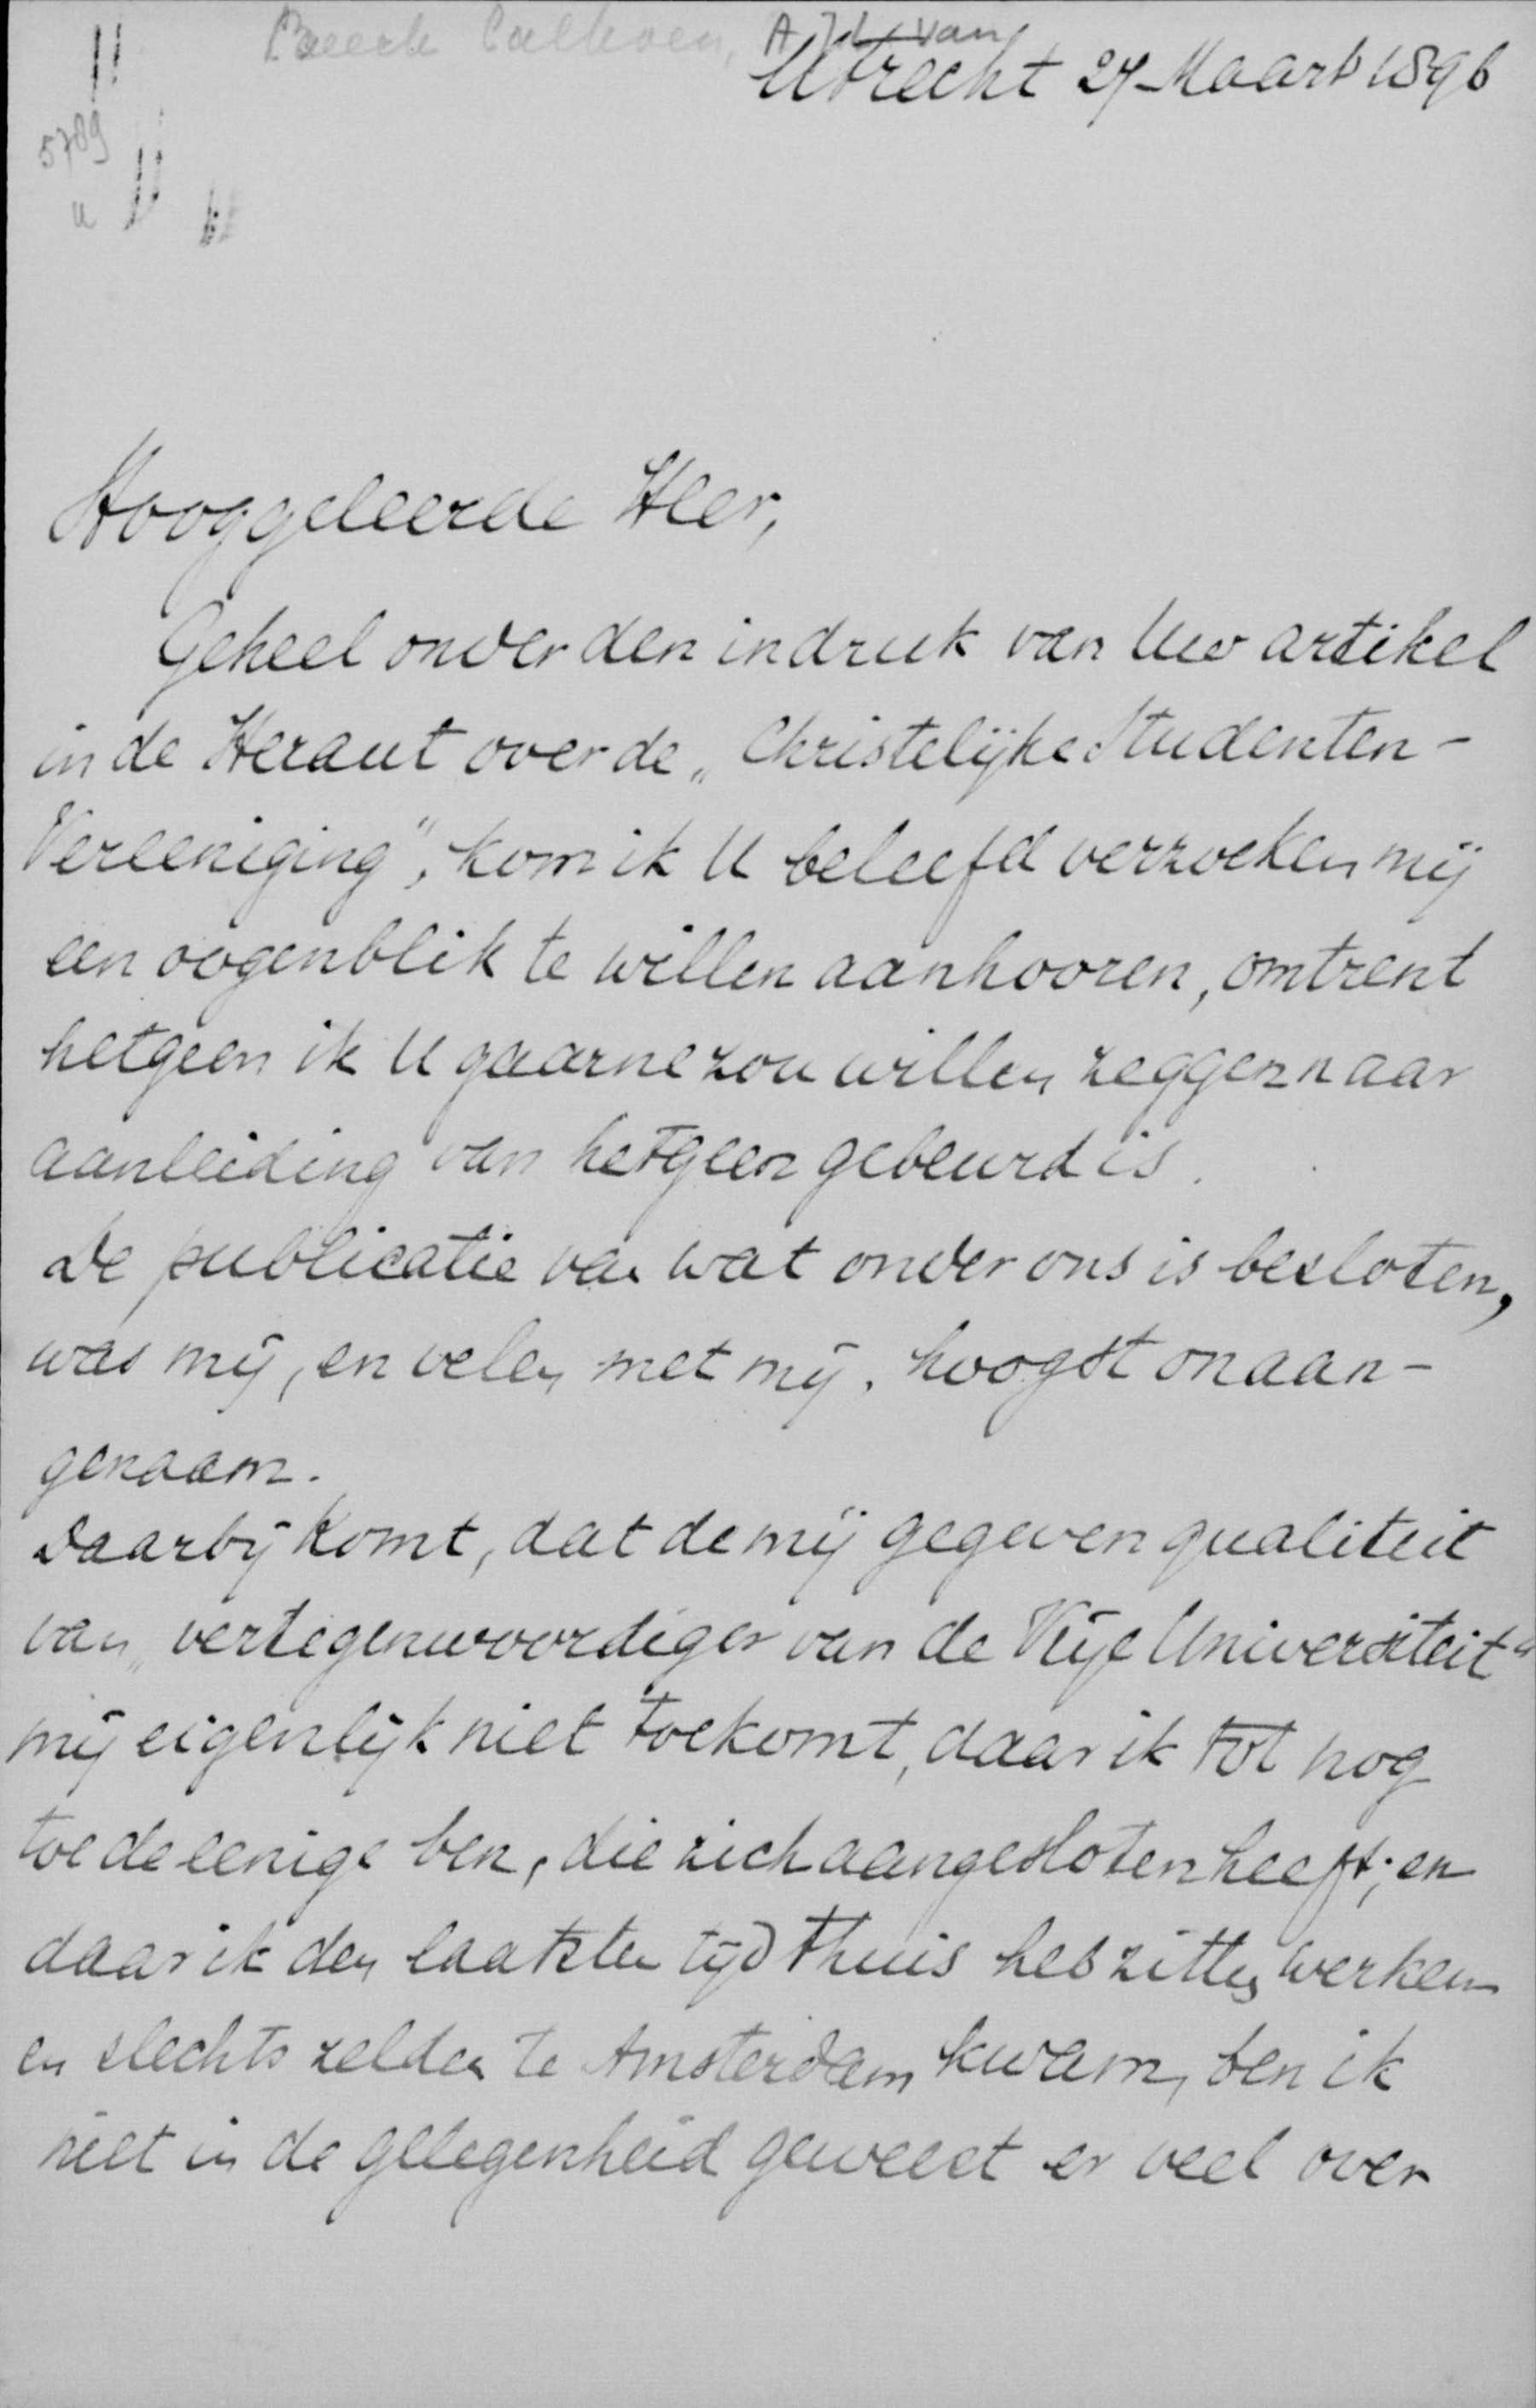 Beeck Calkoen, A. Th. van
Utrecht 27 Maart 1896
5789
u
Hooggeleerde Heer,
Geheel onder den indruk van Uw artikel
in de Heraut over de „Christelijke Studenten-
Vereeniging", kom ik U beleefd verzoeken mij
een oogenblik te willen aanhooren, omtrent
hetgeen ik U gaarne zou willen zeggen naar
aanleiding van hetgeen gebeurd is.
De publicatie van wat onder ons is besloten,
was mij, en velen met mij, hoogst onaan-
genaam.
Daarbij komt, dat de mij gegeven qualiteit
van „vertegenwoordiger van de Vrije Universiteit"
mij eigenlijk niet toekomt, daar ik tot nog
toe de eenige ben, die zich aangesloten heeft; en
daar ik den laatsten tijd thuis heb zitten werken
en slechts zelden te Amsterdam kwam, ben ik
niet in de gelegenheid geweest er veel over